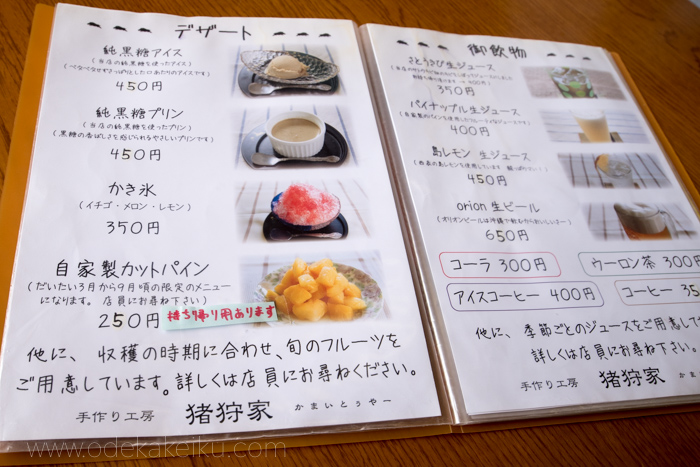 デザート
純黒糖アイス
(当店の純黒糖を使ったアイス)
450円
純黒糖プリン
(当店の純黒糖を使ったプリン)
(黒糖の香ばしさを感じられるやさしいプリンです)
450円
かき氷
(イチゴ・メロン・レモン)
350円
自家製カットパイン
(だいたい3月から9月頃の限定のメニュー
になります。店員にお尋ね下さい)
250円 持ち帰り用あります
他に、収穫の時期に合わせ、旬のフルーツを
ご用意しています。詳しくは店員にお尋ねください。
手作り工房 猪狩家 かまいとぅやー
御飲物
さとうきび生ジュース
350円
パイナップル生ジュース
400円
島レモン 生ジュース
450円
orion 生ビール
(オリオンビールは沖縄で飲むからおいしいさー)
650円
コーラ 300円
ウーロン茶 300円
アイスコーヒー 400円
コーヒー 35
他に、季節ごとのジュースをご用意して
詳しくは店員にお尋ね下さい。
手作り工房 猪狩家 かま
www.odekakeiku.com